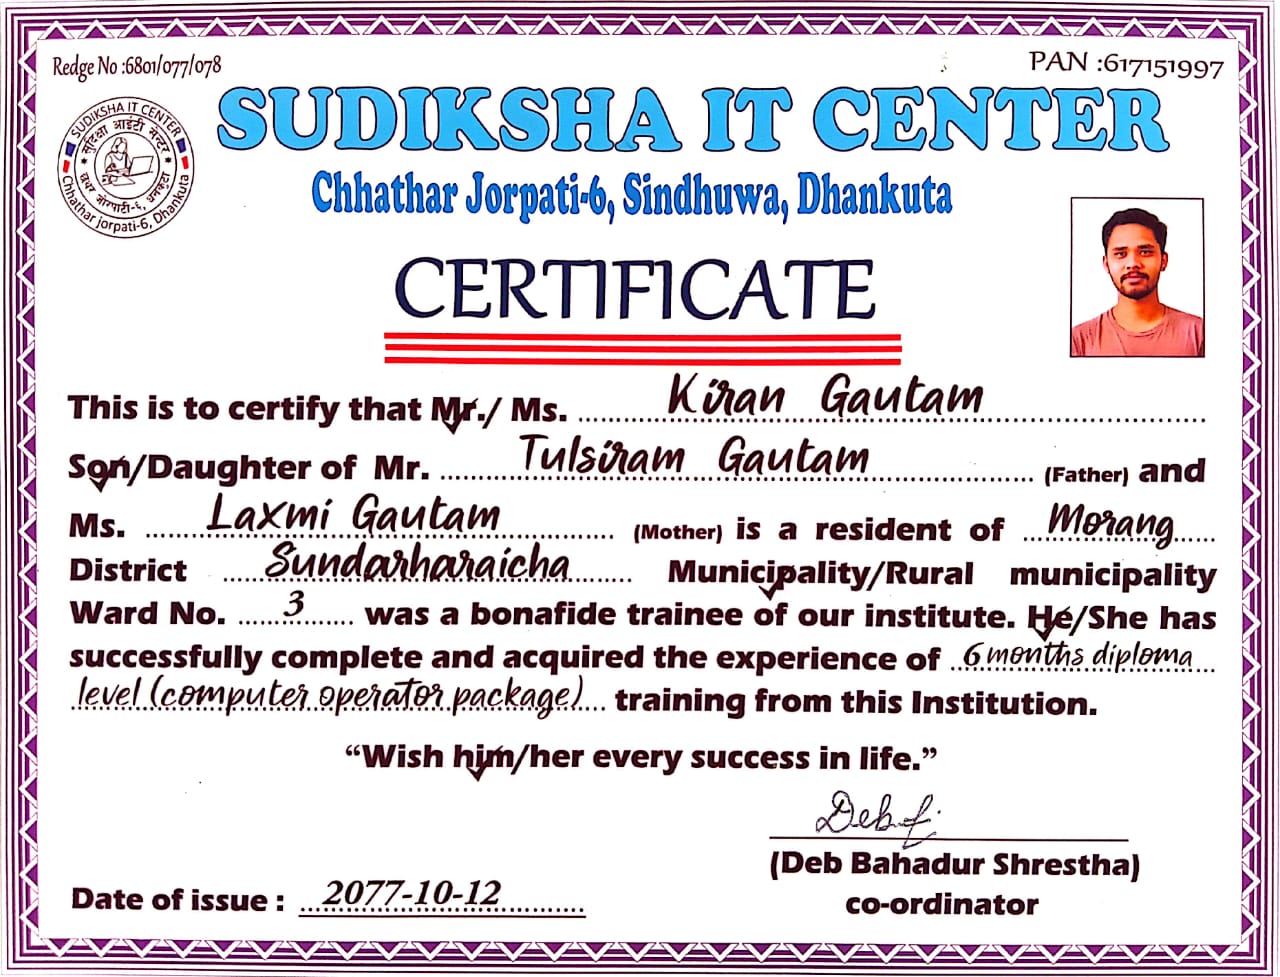 Redge No :6801/077/078
PAN :617151997
SUDIKSHA IT CENTER
सुदिक्षा आईटी सेन्टर
छथर जोरपाटी-६, धनकुटा
Chhathar jorpati-6, Dhankuta
SUDIKSHA IT CENTER
Chhathar Jorpati-6, Sindhuwa, Dhankuta
CERTIFICATE
This is to certify that Mr./ Ms. Kiran Gautam
Son/Daughter of Mr. Tulsiram Gautam (Father) and
Ms. Laxmi Gautam (Mother) is a resident of Morang
District Sundarharaicha Municipality/Rural municipality
Ward No. 3 was a bonafide trainee of our institute. He/She has
successfully complete and acquired the experience of 6 months diploma
level (computer operator package) training from this Institution.
“Wish him/her every success in life.”
(Deb Bahadur Shrestha)
Date of issue : 2077-10-12
co-ordinator